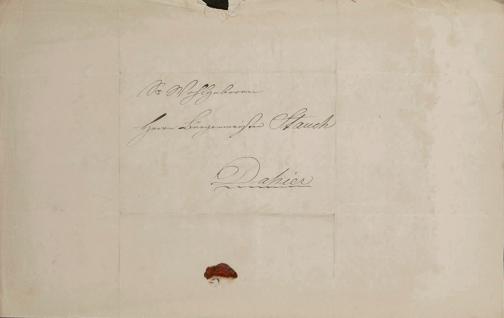 Sr Wohlgeboren
Herrn Bürgermeister Stauch
Dahier